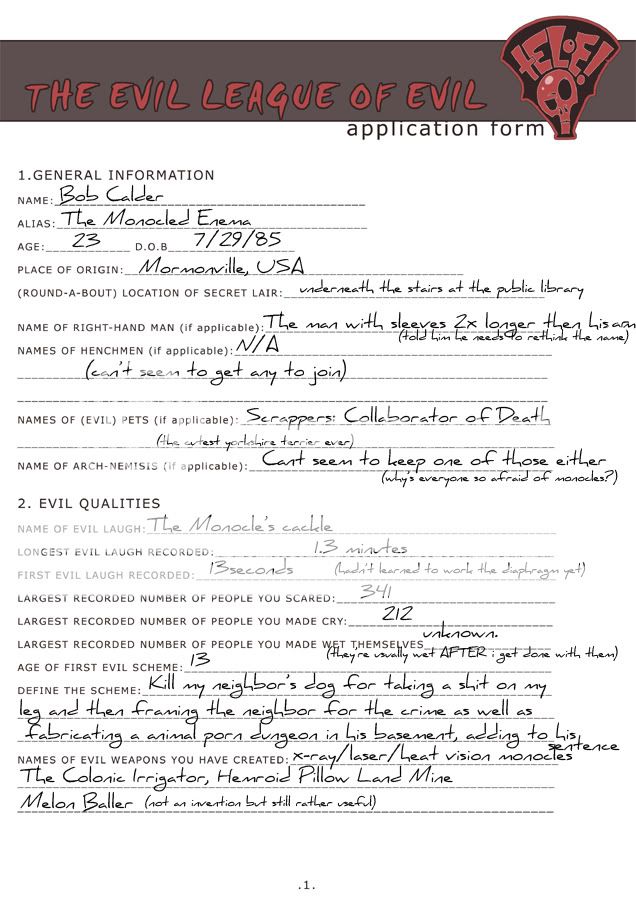 THE EVIL LEAGUE OF EVIL
tELoE!
application form
1.GENERAL INFORMATION
NAME: Bob Calder
ALIAS: The Monocled Enema
AGE: 23 D.O.B 7/29/85
PLACE OF ORIGIN: Mormonville, USA
(ROUND-A-BOUT) LOCATION OF SECRET LAIR: underneath the stairs at the public library
NAME OF RIGHT-HAND MAN (if applicable): The man with sleeves 2x longer then his arm
(told him he needs to rethink the name)
NAMES OF HENCHMEN (if applicable): N/A
(can't seem to get any to join)
NAMES OF (EVIL) PETS (if applicable): Scrappers: Collaborator of Death
(the cutest yorkshire terrier ever)
NAME OF ARCH-NEMISIS (if applicable): Cant seem to keep one of those either
(why's everyone so afraid of monocles?)
2. EVIL QUALITIES
NAME OF EVIL LAUGH: The Monocle's cackle
LONGEST EVIL LAUGH RECORDED: 1.3 minutes
FIRST EVIL LAUGH RECORDED: 13seconds (hadn't learned to work the diaphragm yet)
LARGEST RECORDED NUMBER OF PEOPLE YOU SCARED: 341
LARGEST RECORDED NUMBER OF PEOPLE YOU MADE CRY: 212
LARGEST RECORDED NUMBER OF PEOPLE YOU MADE WET THEMSELVES unknown.
(they're usually wet AFTER i get done with them)
AGE OF FIRST EVIL SCHEME: 13
DEFINE THE SCHEME: Kill my neighbor's dog for taking a shit on my
leg and then framing the neighbor for the crime as well as
fabricating a animal porn dungeon in his basement, adding to his
sentence
NAMES OF EVIL WEAPONS YOU HAVE CREATED: x-ray/laser/heat vision monocles
The Colonic Irrigator, Hemroid Pillow Land Mine
Melon Baller (not an invention but still rather useful)
.1.